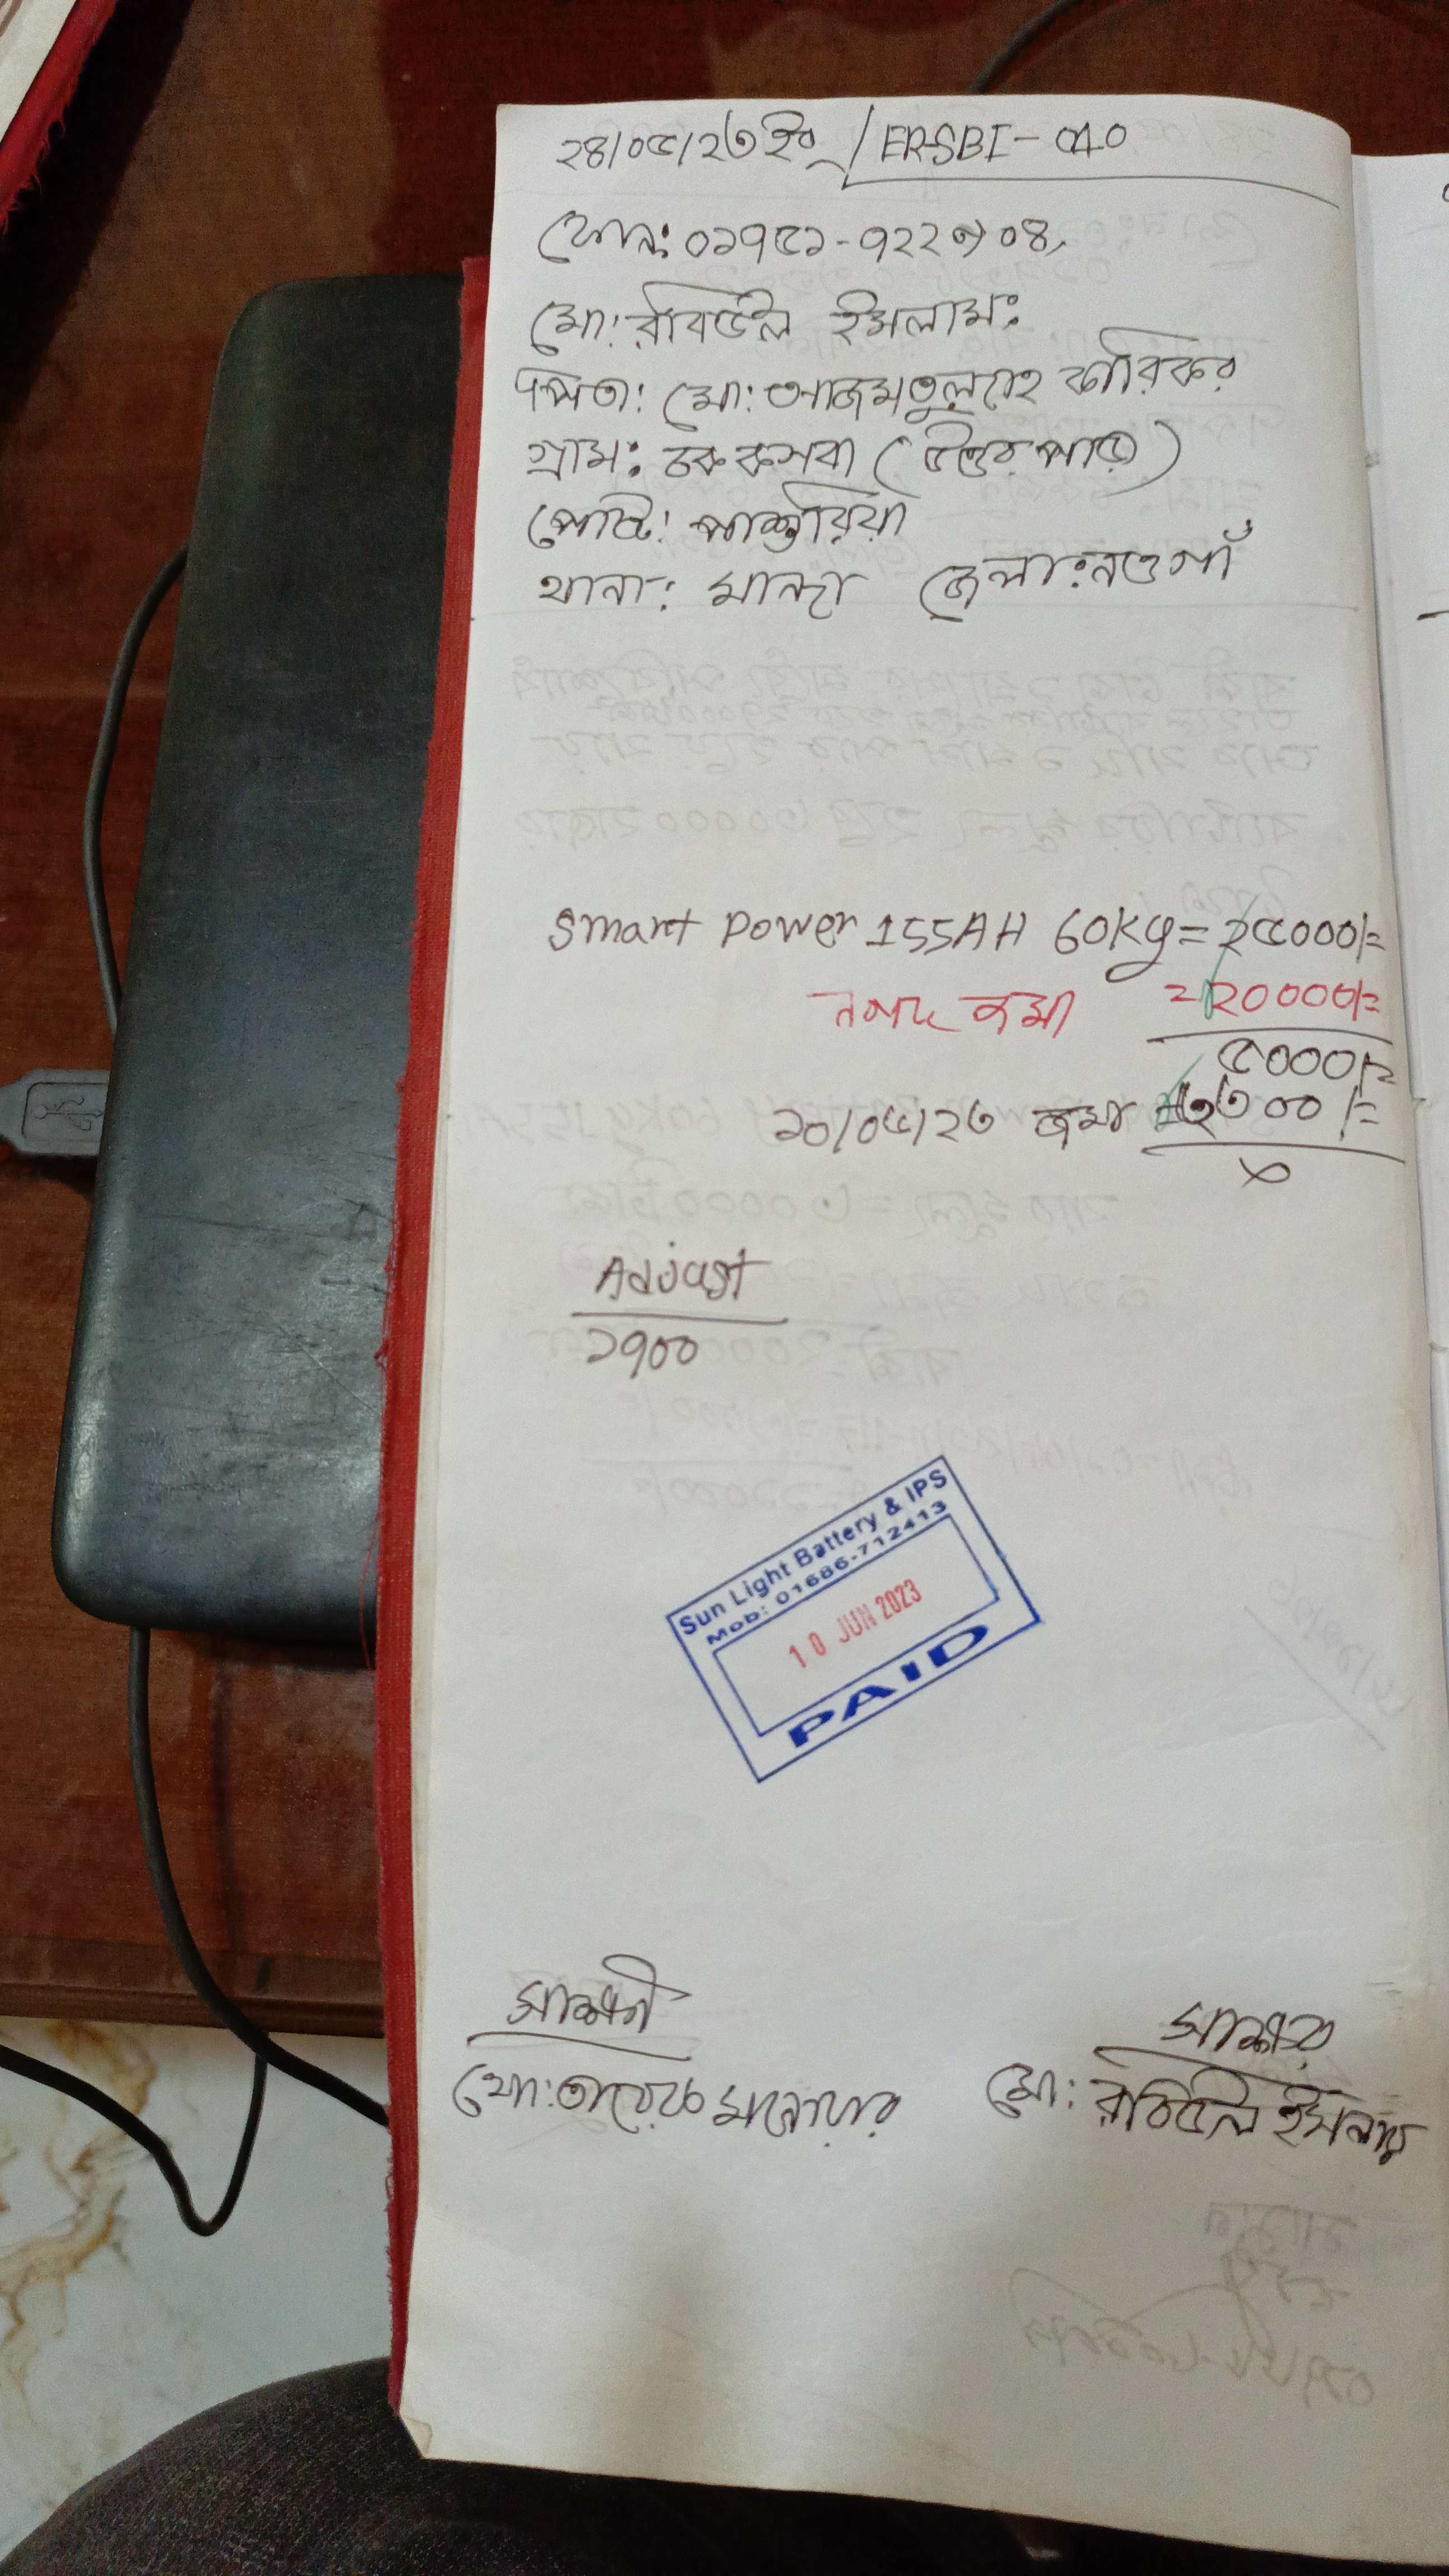 ২৪/০৫/২৩ ইং / ER-SBI-040
ফোন: ০১৭৫১-৭২২৭০৪,
মো: রবিউল ইসলাম:
পিতা: মো: আজমতুল্লাহ কারিকর
গ্রাম: চককসবা (উত্তর পাড়া)
পোষ্ট: পাজুরিয়া
থানা: মান্দা জেলা: নওগাঁ
Smart Power 155AH 60kg = ২৫০০০/=
নগদ জমা = ২০০০০/=
৫০০০/=
১০/০৬/২৩ জমা = ৩৩০০/=
Adjust
১৭০০
Sun Light Battery & IPS
Mob: 01686-712413
10 JUN 2023
PAID
সাক্ষী
সাক্ষর
মো: তারেক মনোয়ার
মো: রবিউল ইসলাম